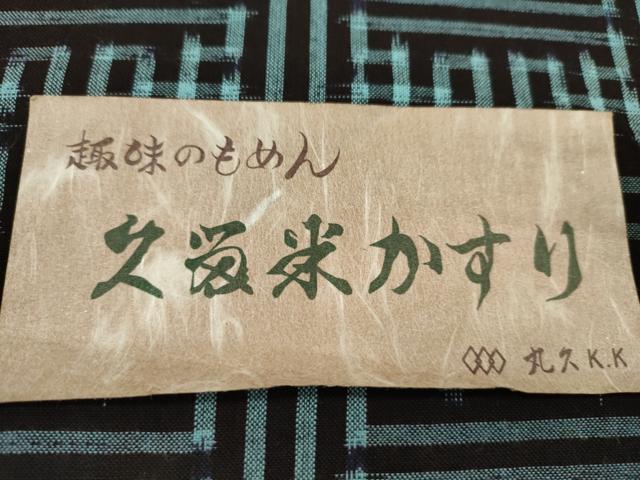 趣味のもめん
久留米かすり
丸久 K.K